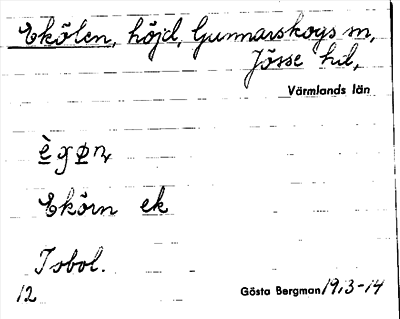 Ekölen, höjd, Gunnarskogs sn,
Jösse hd,
Värmlands län
Ekörn ek
Isbol.
12 Gösta Bergman 1913-14